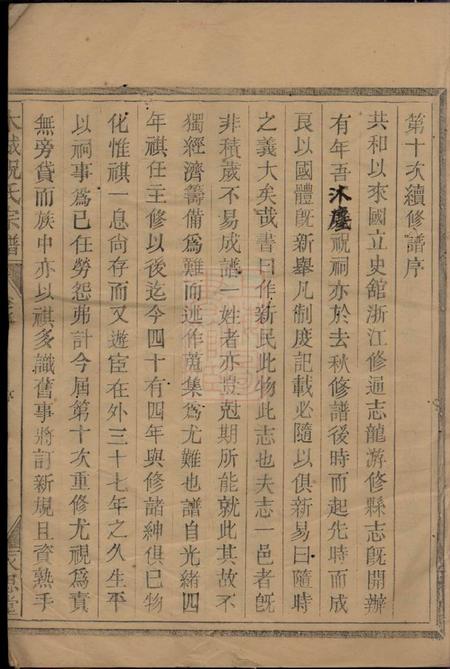 第十次續修譜序
共和以來國立史舘浙江修通志龍游修縣志旣開辦
有年吾沐塵祝祠亦於去秋修譜後時而起先時而成
良以國體旣新舉凡制度記載必隨以俱新易曰隨時
之義大矣哉書曰作新民此物此志也夫志一邑者旣
非積歲不易成譜一姓者亦豈尅期所能就此其故不
獨經濟籌備爲難而述作蒐集爲尤難也譜自光緒四
年祺任主修以後迄今四十有四年與修諸紳俱已物
化惟祺一息尙存而又遊宦在外三十七年之久生平
以祠事爲己任勞怨弗計今屆第十次重修尤視爲責
無旁貸而族中亦以祺多識舊事將訂新規且資熟手
祝氏宗譜